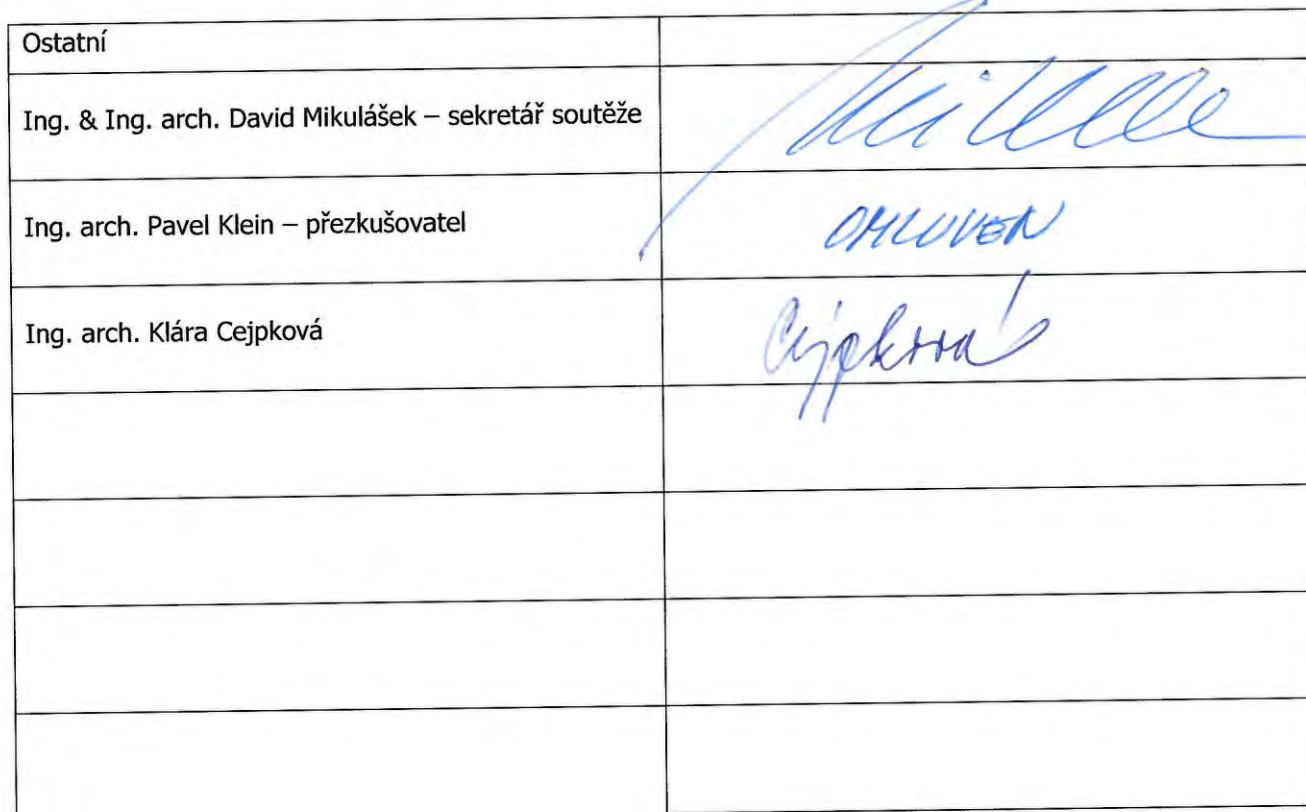 Ostatní
Ing. & Ing. arch. David Mikulášek – sekretář soutěže
Ing. arch. Pavel Klein – přezkušovatel
OMLUVEN
Ing. arch. Klára Cejpková
Cejpková